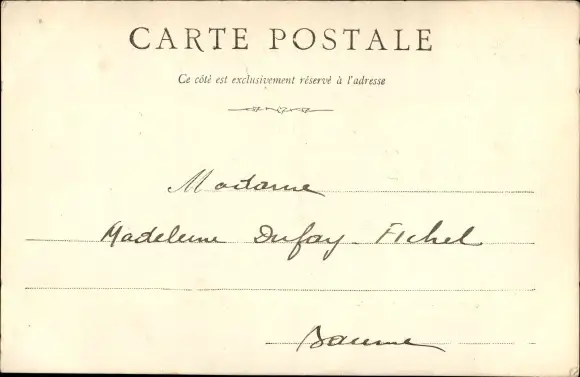 CARTE POSTALE
Ce côté est exclusivement réservé à l'adresse
Madame
Madeleine Dufay - Fichel
Baume